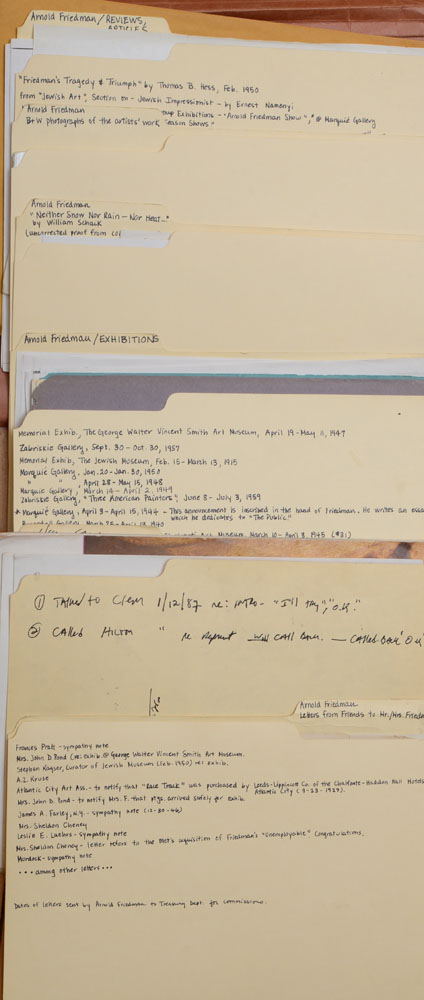 Arnold Friedman/REVIEWS,
ARTICLES
"Friedman's Tragedy & Triumph" by Thomas B. Hess, Feb. 1950
from "Jewish Art", Section on - Jewish Impressionist - by Ernest Namenyi
Arnold Friedman Exhibitions - "Arnold Friedman Show", @ Marquié Gallery
B+W photographs of the artists' work Season Shows."
Arnold Friedman
"Neither Snow Nor Rain - Nor Heat..."
by William Schack
(uncorrected proof from
Arnold Friedman/EXHIBITIONS
Memorial Exhib., The George Walter Vincent Smith Art Museum, April 19-May 11, 1947
Zabriskie Gallery, Sept. 30-Oct. 30, 1957
Memorial Exhib, The Jewish Museum, Feb. 15-March 13, 1915
Marquié Gallery, Jan. 20-Jan. 30, 1950
" " , April 28-May 15, 1948
Marquié Gallery, March 14-April 2, 1949
Zabriskie Gallery, "Three American Painters", June 8-July 3, 1959
* Marquié Gallery, April 3-April 15, 1944 - This announcement is inscribed in the hand of Friedman. He writes an essa
which he dedicates to "The Public."
Art Museum, March 10-April 8, 1945 (#21)
① Talked to Clem 1/12/87 re: intro - "I'll try", "O.K."
② Called Hilton " re reprint Will call back. — Called back "O.K
Arnold Friedman
Letters from Friends to Mr./Mrs. Friedm
Frances Pratt - sympathy note
Mrs. John D. Pond (re: exhib. @ George Walter Vincent Smith Art Museum.
Stephen Kayser, Curator of Jewish Museum (Feb. 1950) re: exhib.
A.L. Kruse
Atlantic City Art Ass. - to notify that "Race Track" was purchased by Leeds-Lippincott Co. of the Chalfonte-Haddon Hall Hotels
Atlantic City (9-23-1929).
Mrs. John D. Pond - to notify Mrs. F. that ptgs. arrived safely for exhib.
James A. Farley, N.Y. - sympathy note (12-30-46)
Mrs. Sheldon Cheney
Leslie E. - sympathy note
Mrs. Sheldon Cheney - letter refers to the Met's acquisition of Friedman's "Unemployable" Congratulations.
Murdock - sympathy note
...among other letters...
Dates of letters sent by Arnold Friedman to Treasury Dept. for commissions.